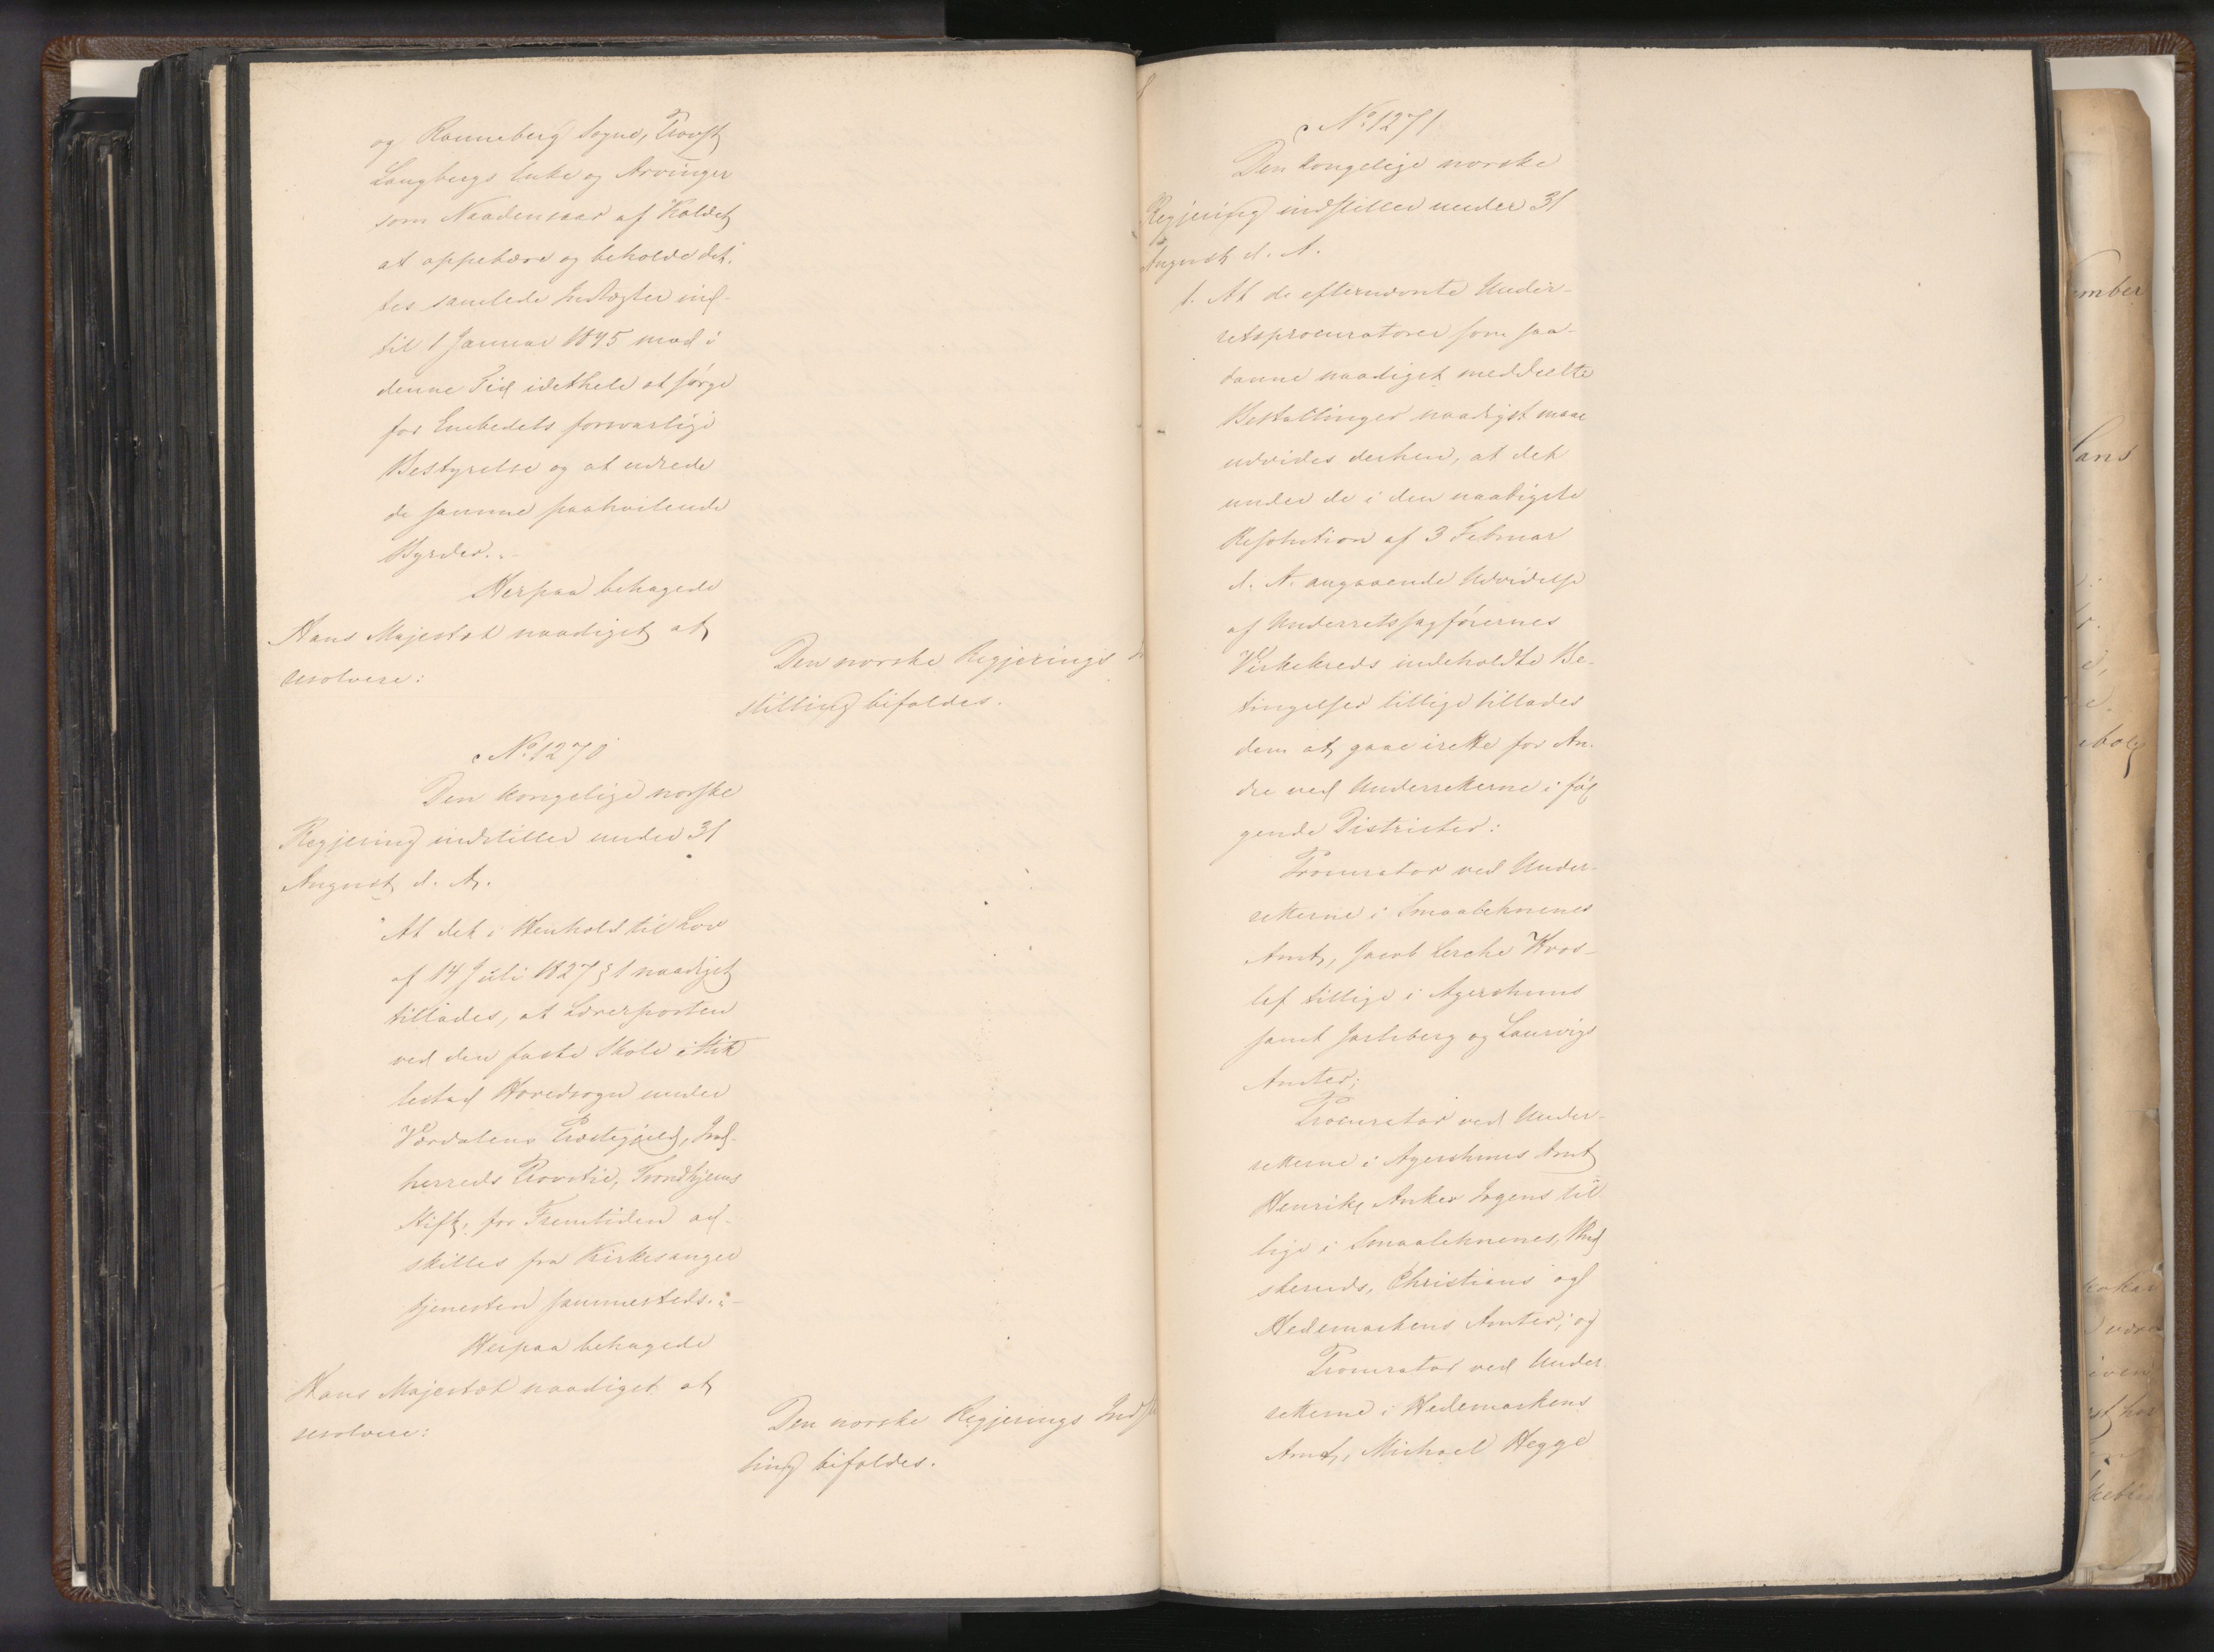 og Ranneberg Sogne, Provst
Langbergs Enke og Arvinger
som Naadensaar af Kaldet
at oppebære og beholde det-
tes samlede Indtægter ind-
til 1 Januar 1845 mod i
denne Tid idethele at sørge
for Embedets forsvarlige
Bestyrelse og at udrede
de samme paahvilende
Byrder.
Herpaa behagede
Hans Majestæt naadigst at
resolvere:
Den norske Regjerings
stilling bifaldes.
No. 1270
Den kongelige norske
Regjering indstiller under 31
August d. A.
At det i Henhold til Lov
af 14 Juli 1827 § 1 naadigst
tillades, at Lærerposten
ved den faste Skole i Stik
lestad Hovedsogn under
Værdalens Præstegjeld, Ind-
herreds Provsti, Trondhjems
Stift, for Fremtiden ad-
skilles fra Kirkesanger
tjenesten sammesteds.
Herpaa behagede
Hans Majestæt naadigst at
resolvere:
Den norske Regjerings Indstil
ling bifaldes.
No. 1271
Den kongelige norske
Regjering indstiller under 31
August d. A.
1. At de efternævnte Under-
retsprocuratorer som saa-
danne naadigst meddeelte
Bestallinger naadigst maae
udvides derhen, at det
under de i den naadigste
Resolution af 3 Februar
d. A. angaaende Udvidelse
af Underretssagførernes
Virkekreds indeholdte Be-
tingelser tillige tillades
dem at gaae irette for An-
dre ved Underretterne i føl
gende Districter:
Procurator ved Under-
retterne i Smaalehnenes
Amt, Jacob Lerche
tillige i Agershuus
samt Jarlsberg og Laurvigs
Amter;
Procurator ved Under-
retterne i Agershuus Amt
Henrik Anker Irgens til
lige i Smaalehnenes, Bud
skeruds, Christians og
Hedemarkens Amter; og
Procurator ved Under
retterne i Hedemarkens
Amt, Michael Hegge